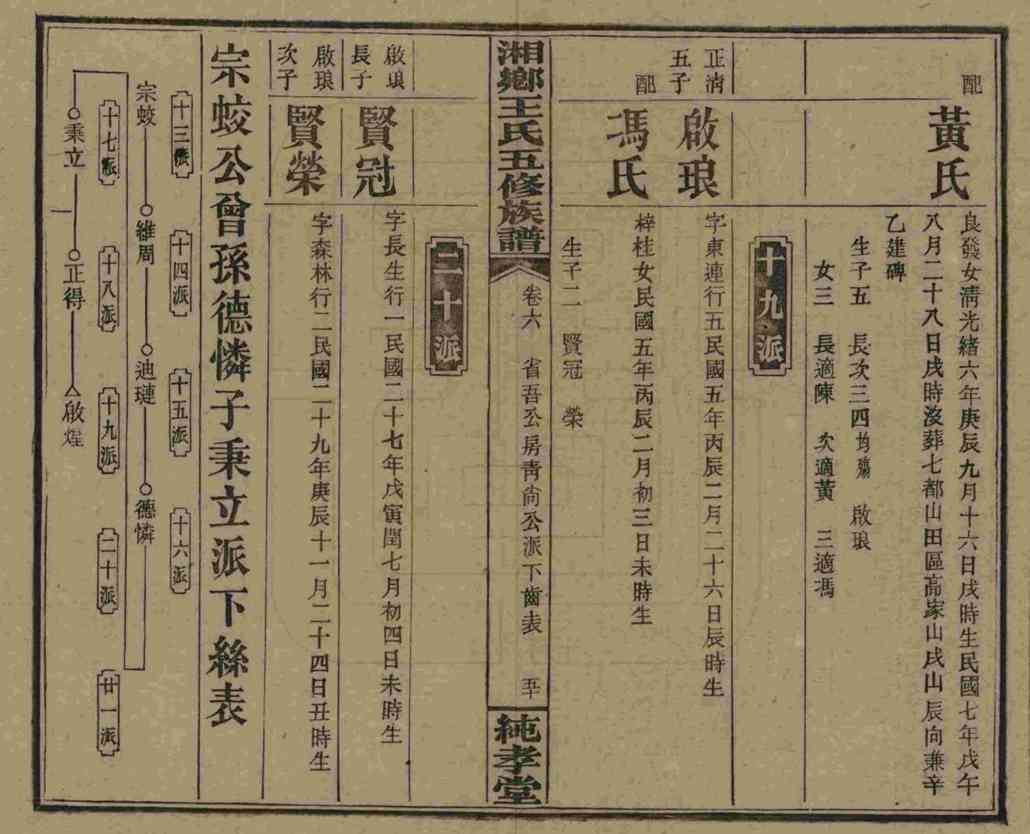 配
黃氏
良發女淸光緒六年庚辰九月十六日戌時生民國七年戊午
八月二十八日戌時沒葬七都山田區高家山戌山辰向兼辛
乙建碑
生子五 長次三四均殤 啟琅
女三 長適陳 次適黃 三適馮
十九派
正淸五子
啟琅
字東連行五民國五年丙辰二月二十六日辰時生
配
馮氏
梓桂女民國五年丙辰二月初三日未時生
生子二 賢冠 榮
湘鄉王氏五修族譜
卷六 省吾公房靑尙公派下齒表
純孝堂
二十派
啟琅長子
賢冠
字長生行一民國二十七年戊寅閏七月初四日未時生
啟琅次子
賢榮
字森林行二民國二十九年庚辰十一月二十四日丑時生
宗蛟公曾孫德憐子秉立派下絲表
十三派 十四派 十五派 十六派
宗蛟 維周 迪璉 德憐
十七派 十八派 十九派 二十派 廿一派
秉立 正得 啟煋